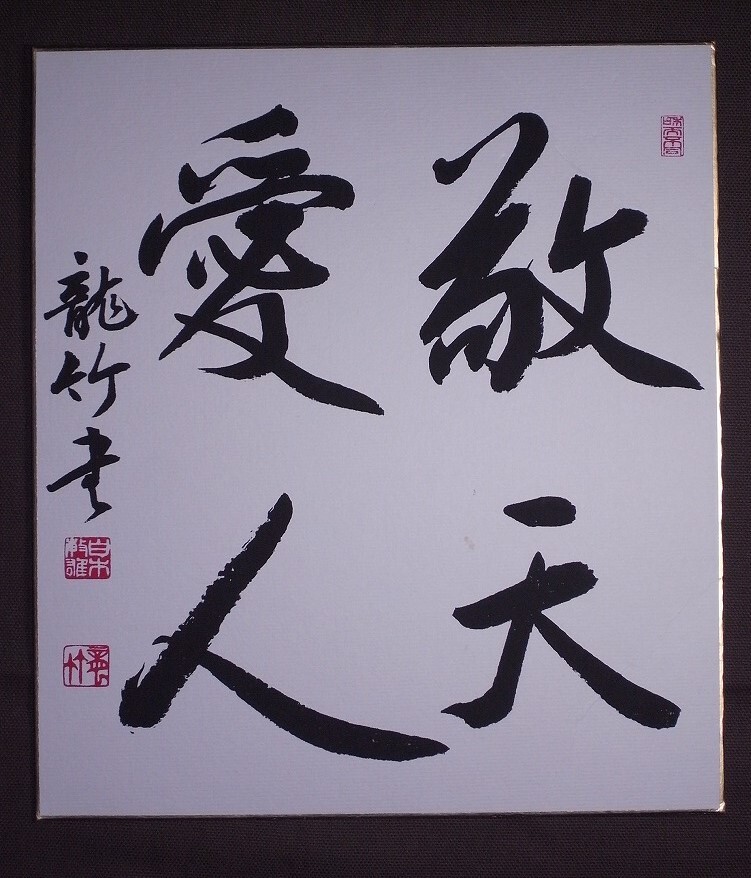 敬天
愛人
龍竹書